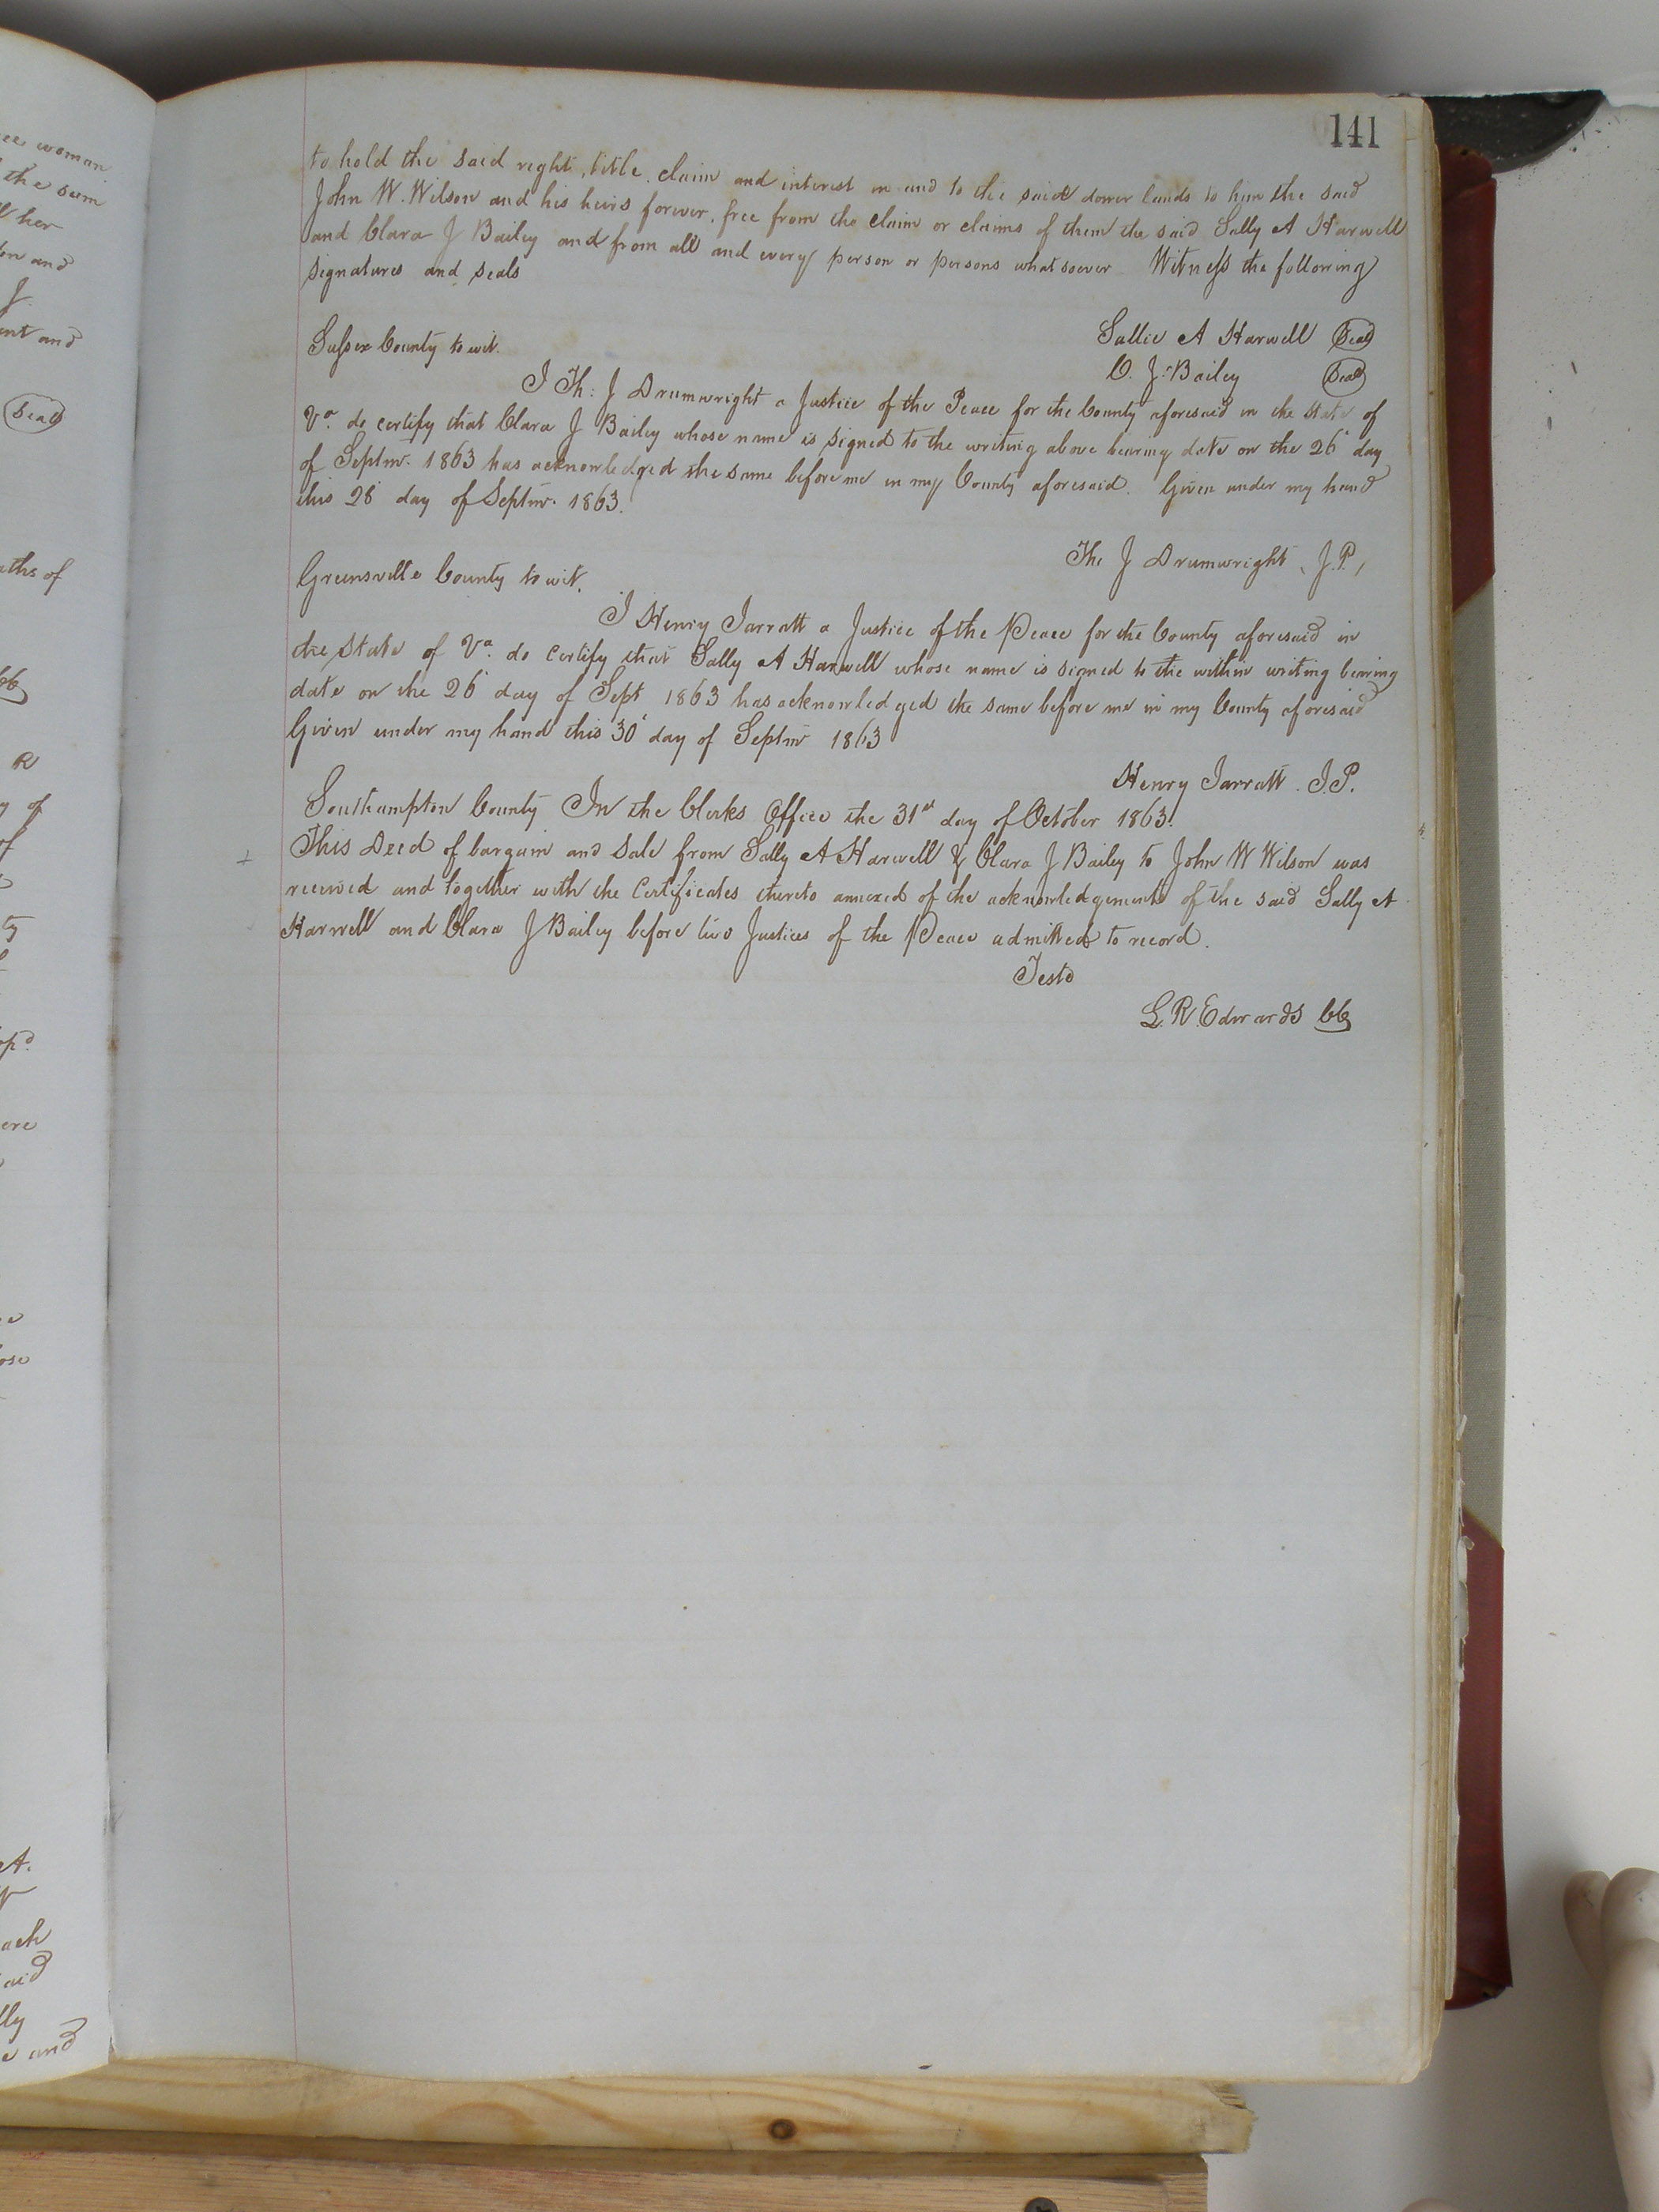 141
to hold the said right, title, claim and interest in and to the said dower lands to him the said
John W. Wilson and his heirs forever, free from the claim or claims of them the said Sally A Harwell
and Clara J Bailey and from all and every person or persons whatsoever Witness the following
signatures and seals
Sallie A Harwell Seal
Sussex County to wit.
C. J. Bailey Seal
I Th: J Drumwright a Justice of the Peace for the County aforesaid in the State of
Va. do certify that Clara J Bailey whose name is signed to the writing above bearing date on the 26 day
of Septmr. 1863 has acknowledged the same before me in my County aforesaid. Given under my hand
this 28 day of Septmr. 1863.
Th. J Drumwright, J.P.,
Greensville County to wit.
I Henry Jarratt a Justice of the Peace for the County aforesaid in
the State of Va. do certify that Sally A Harwell whose name is signed to the within writing bearing
date on the 26 day of Sept 1863 has acknowledged the same before me in my County aforesaid
Given under my hand this 30 day of Septmr 1863
Henry Jarratt. J.P.
Southampton County In the Clerks Office the 31st day of October 1863.
This Deed of bargain and sale from Sally A Harwell & Clara J Bailey to John W Wilson was
received and together with the certificates thereto annexed of the acknowledgements of the said Sally A
Harwell and Clara J Bailey before two Justices of the Peace admitted to record.
Teste
L. R. Edwards CC
ee woman
the sum
her
on and
J.
ent and
Seal
aths of
CC
R
of
of
ty
ere
ose
A.
ach
aid
lly
e and